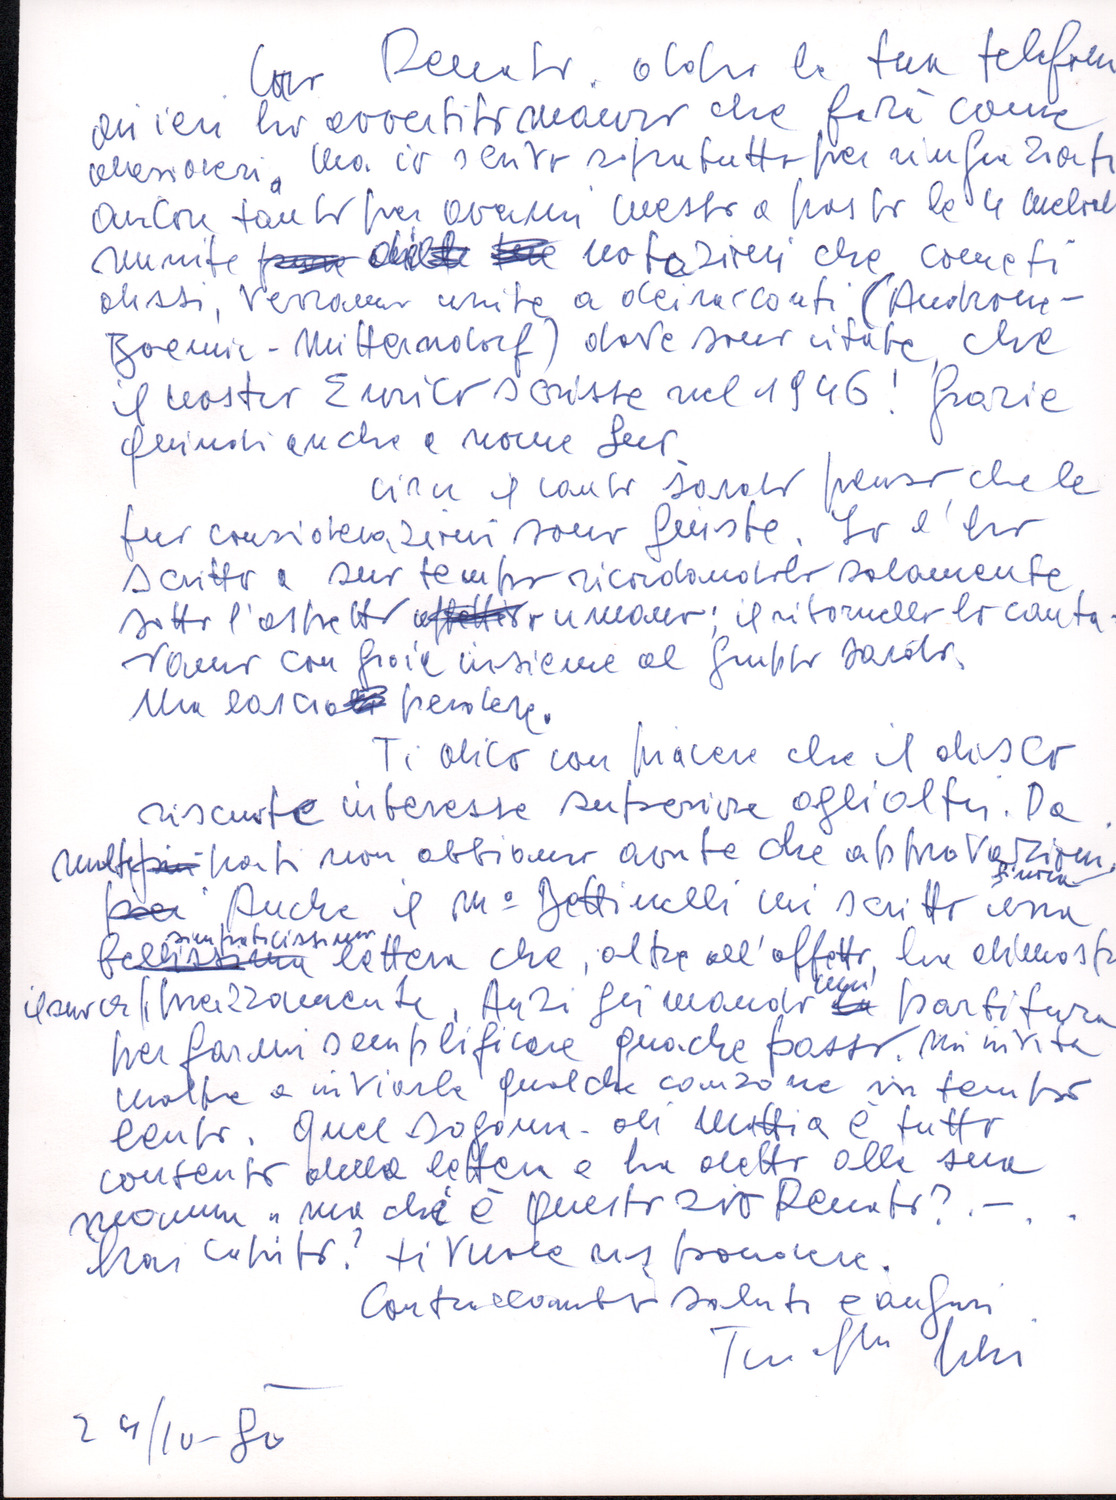 Caro Renato, dopo la tua telefon
di ieri ho avvertito Mauro che farà come
desideri. Ma io sento sopratutto per ringraziarti
ancora tanto per avermi messo a posto le 4 melod
munite notazioni che, come ti
dissi, verranno unite a dei racconti (Androna-
Boemia - Mitterndorf) dove sono citate, che
il nostro Enrico scrisse nel 1946! Grazie
quindi anche a nome suo.
Circa il canto sardo penso che le
tue considerazioni sono giuste. Io l'ho
scritto a suo tempo ricordandolo solamente
sotto l'aspetto umano; il ritornello lo canta-
vamo con gioia insieme al gruppo sardo.
Ma lascia perdere.
Ti dico con piacere che il disco
riscuote interesse superiore agli altri. Da
molte parti non abbiamo avute che approvazioni.
Anche il M° Bettinelli mi scritto una
simpaticissima lettera che, oltre all'affetto, ha dimostr
il suo apprezzamento. Anzi gli mandò partitura
per farmi semplificare qualche passo. Mi invita
inoltre a inviarle qualche canzone in tempo
lento. Quel sagoma di Mattia è tutto
contento della lettera e ha detto alla sua
mamma "ma chi è questo zio Renato? . - . .
hai capito? ti vuole rispondere.
Contraccambio saluti e auguri
24/IV-80